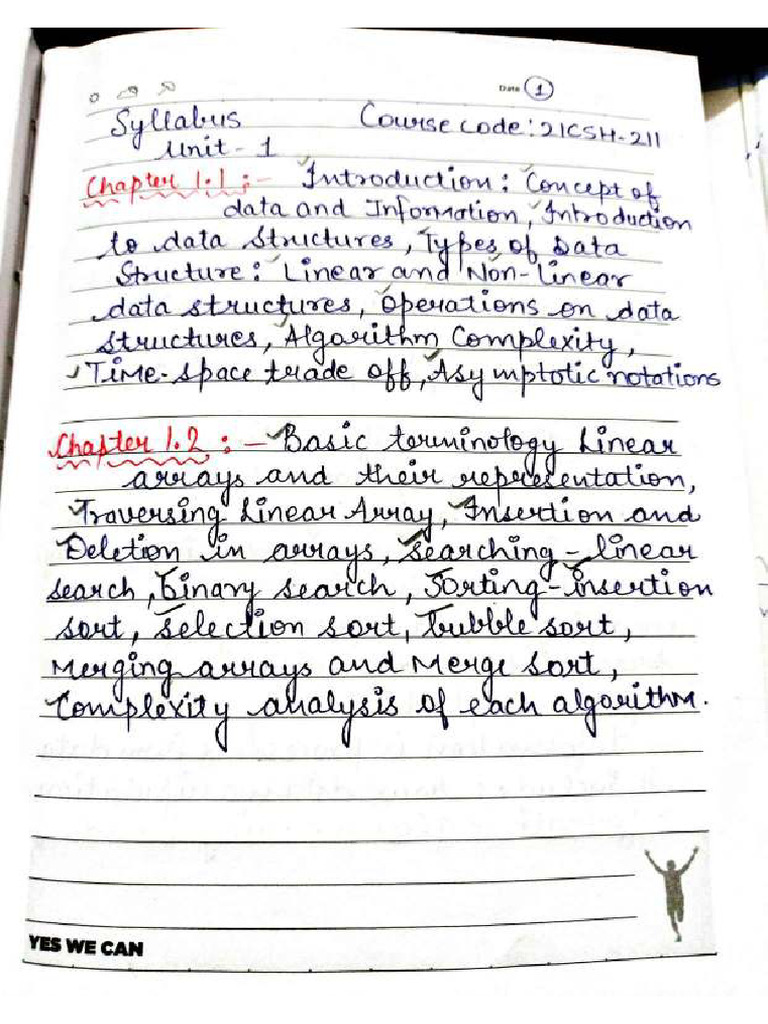 Date 1
Syllabus Course code: 21CSH-211
Unit-1
Chapter 1.1:- Introduction: Concept of
data and Information, Introduction
to data structures, Types of Data
Structure: Linear and Non-Linear
data structures, Operations on data
structures, Algorithm Complexity,
Time-space trade off, Asymptotic notations
Chapter 1.2:- Basic terminology Linear
arrays and their representation,
Traversing Linear Array, Insertion and
Deletion in arrays, Searching-linear
search, binary search, Sorting-insertion
sort, selection sort, bubble sort,
Merging arrays and Merge sort,
Complexity analysis of each algorithm.
YES WE CAN